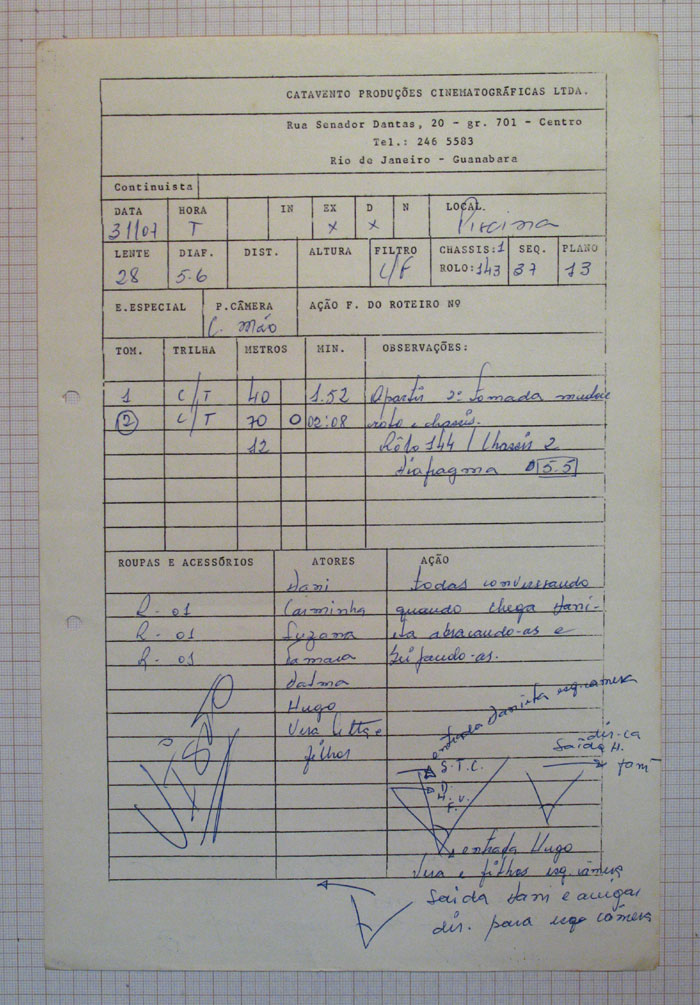 CATAVENTO PRODUÇÕES CINEMATOGRÁFICAS LTDA.
Rua Senador Dantas, 20 - gr. 701 - Centro
Tel.: 246 5583
Rio de Janeiro - Guanabara
Continuista
DATA HORA IN EX D N LOCAL.
31/07 T x x Piscina
LENTE DIAF. DIST. ALTURA FILTRO CHASSIS:1 SEQ. PLANO
28 5.6 C/F ROLO:143 37 13
E.ESPECIAL P.CÂMERA AÇÃO F. DO ROTEIRO Nº
C. mão
TOM. TRILHA METROS MIN. OBSERVAÇÕES:
1 C/T 40 1.52 Apartir 2ª tomada
2 C/T 70 02:08 rolo e chassis.
12 Rôlo 144 / Chassis 2
5.5
ROUPAS E ACESSÓRIOS ATORES AÇÃO
Dani todas conversando
R - 01 Carminha quando chega Dani-
R - 01 Suzana ela abracando-as e
R - 01 Tamara beijando-as.
Dalma
Hugo
Vera
filhos
entrada Daniela esq câmera
Saída H.
S.T.C.
D.
H. V.
F.
entrada Hugo
Vera e filhos esq câmera
Saída Dani e amigas
dir. para esq câmera